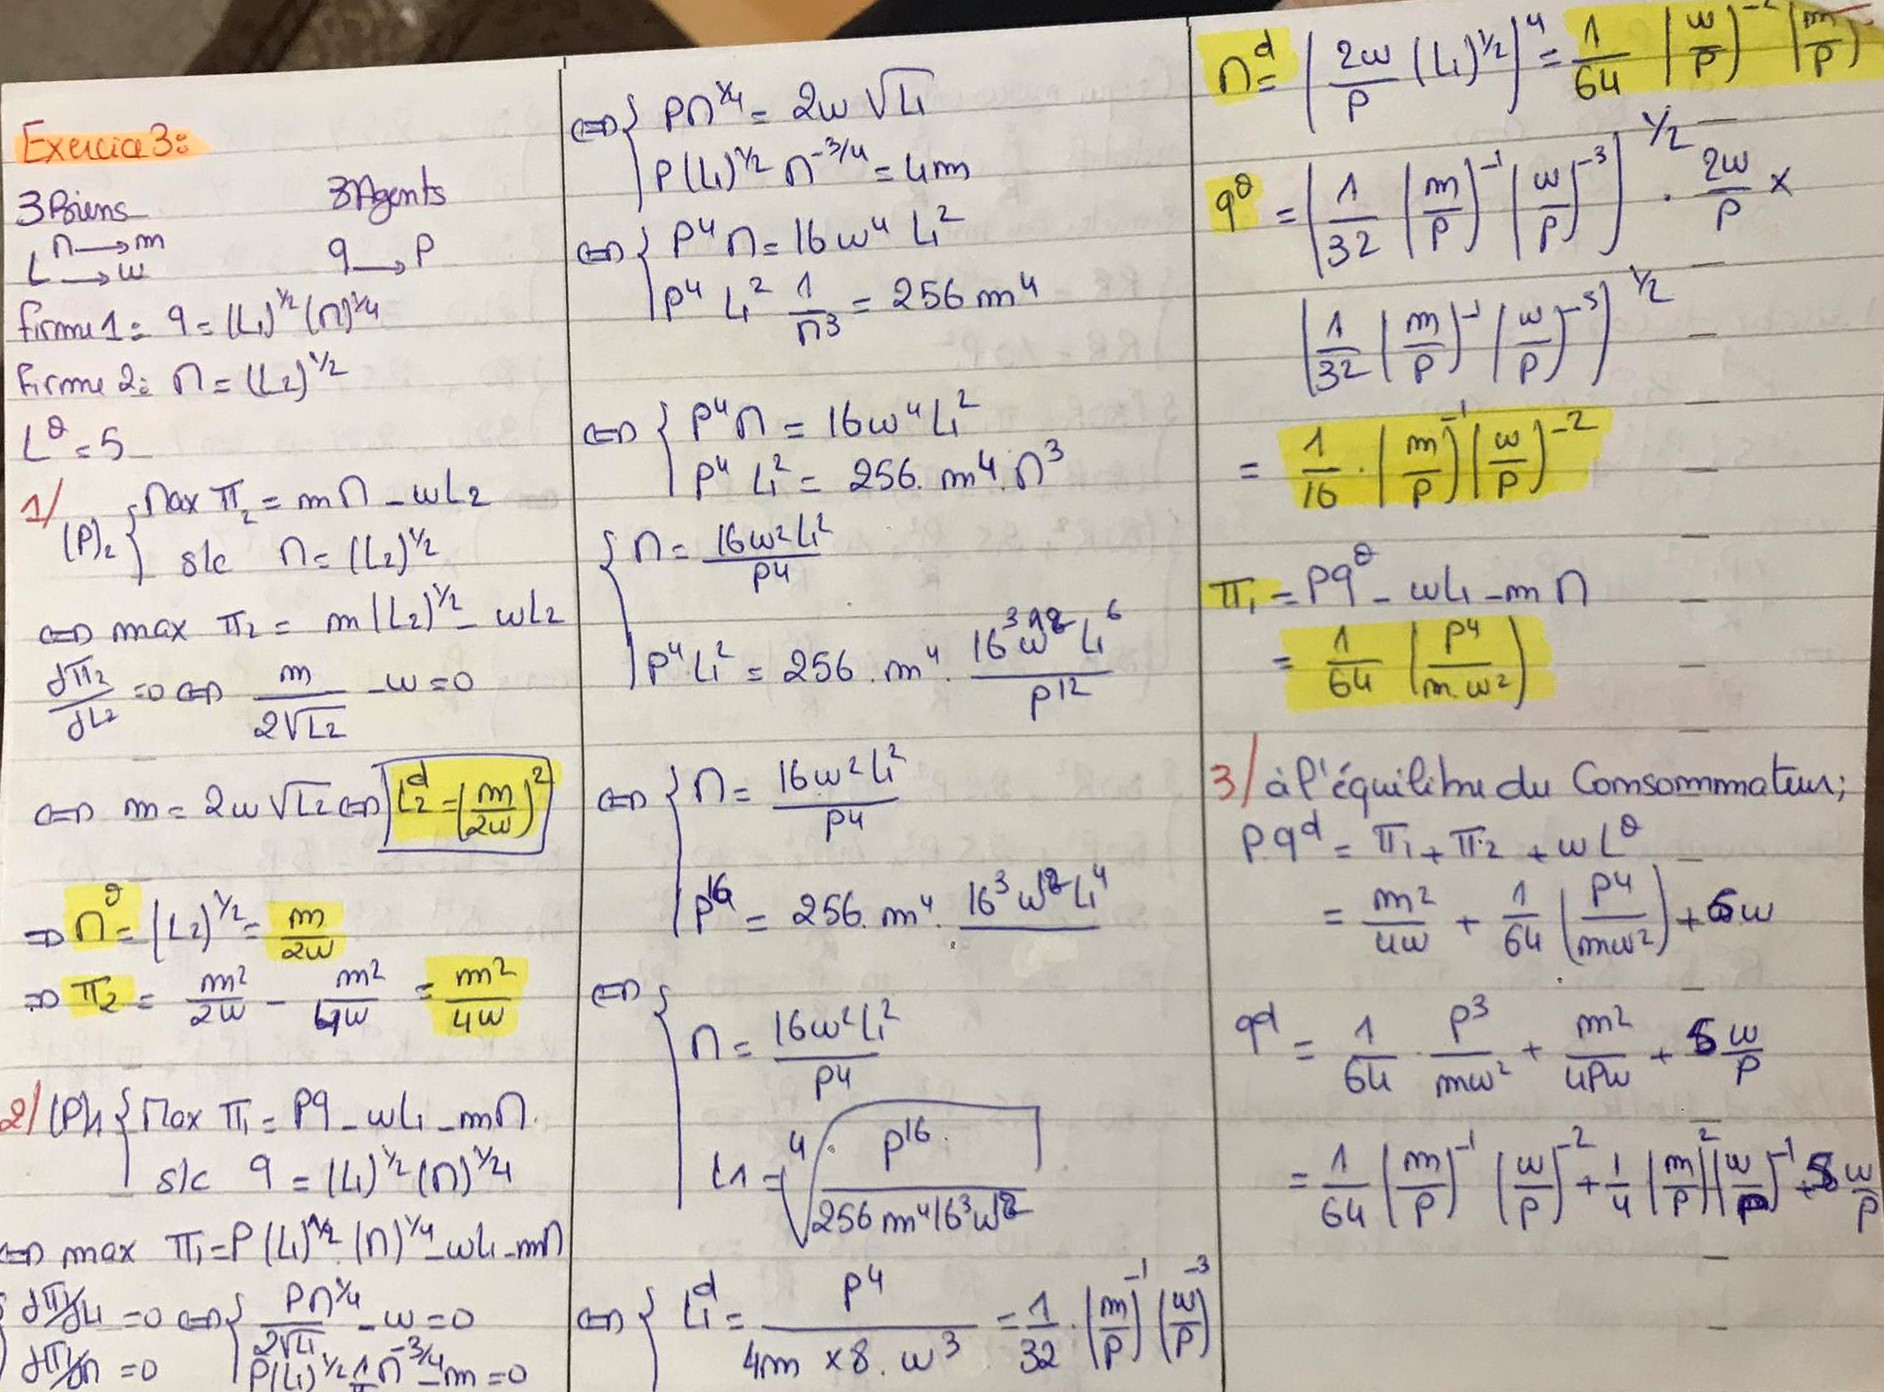 Exercice 3:
3 Biens 3 Agents
n → m
L → w q → p
firme 1 = q = (L₁)^1/2 (n)^1/4
firme 2: n = (L₂)^1/2
L^o = 5
1/ (P)₂ { Max π₂ = mn - wL₂
s/c n = (L₂)^1/2
⇔ max π₂ = m(L₂)^1/2 - wL₂
∂π₂/∂L₂ = 0 ⇔ m/(2√L₂) - w = 0
⇔ m = 2w√L₂ ⇔ L₂^d = (m/2w)²
⇒ n^o = (L₂)^1/2 = m/2w
⇒ π₂ = m²/2w - m²/4w = m²/4w
2/ (P)₁ { Max π₁ = Pq - wL₁ - mn.
s/c q = (L₁)^1/2 (n)^1/4
⇔ max π₁ = P(L₁)^1/2 (n)^1/4 - wL₁ - mn
{ ∂π₁/∂L₁ = 0 ⇔ { Pn^1/4/(2√L₁) - w = 0
∂π₁/∂n = 0 P(L₁)^1/2 1/4 n^-3/4 - m = 0
⇔ { Pn^1/4 = 2w√L₁
P(L₁)^1/2 n^-3/4 = 4m
⇔ { P⁴n = 16w⁴L₁²
P⁴L₁² 1/n³ = 256m⁴
⇔ { P⁴n = 16w⁴L₁²
P⁴L₁² = 256. m⁴. n³
{ n = 16w²L₁²/P⁴
P⁴L₁² = 256. m⁴. 16³w¹²L₁⁶/P¹²
⇔ { n = 16w²L₁²/P⁴
P¹⁶ = 256. m⁴. 16³w¹²L₁⁴
⇔ { n = 16w²L₁²/P⁴
L₁ = ⁴√(P¹⁶/(256m⁴16³w¹²))
⇔ { L₁^d = P⁴/(4m x 8. w³) = 1/32. (m/P)^-1 (w/P)^-3
n^d = (2w/P (L₁)^1/2)⁴ = 1/64 (w/P)^-2 (m/P)
q^o = (1/32 (m/P)^-1 (w/P)^-3)^1/2 . 2w/P x
(1/32 (m/P)^-1 (w/P)^-3)^1/2
= 1/16 . (m/P)^-1 (w/P)^-2
π₁ = Pq^o - wL₁ - mn
= 1/64 (P⁴/m.w²)
3/ à l'équilibre du Consommmateur;
P.q^d = π₁ + π₂ + wL^o
= m²/4w + 1/64 (P⁴/mw²) + 5w
q^d = 1/64 . P³/mw² + m²/4Pw + 5 w/P
= 1/64 (m/P)^-1 (w/P)^-2 + 1/4 (m/P)² (w/P)^-1 + 5 w/P